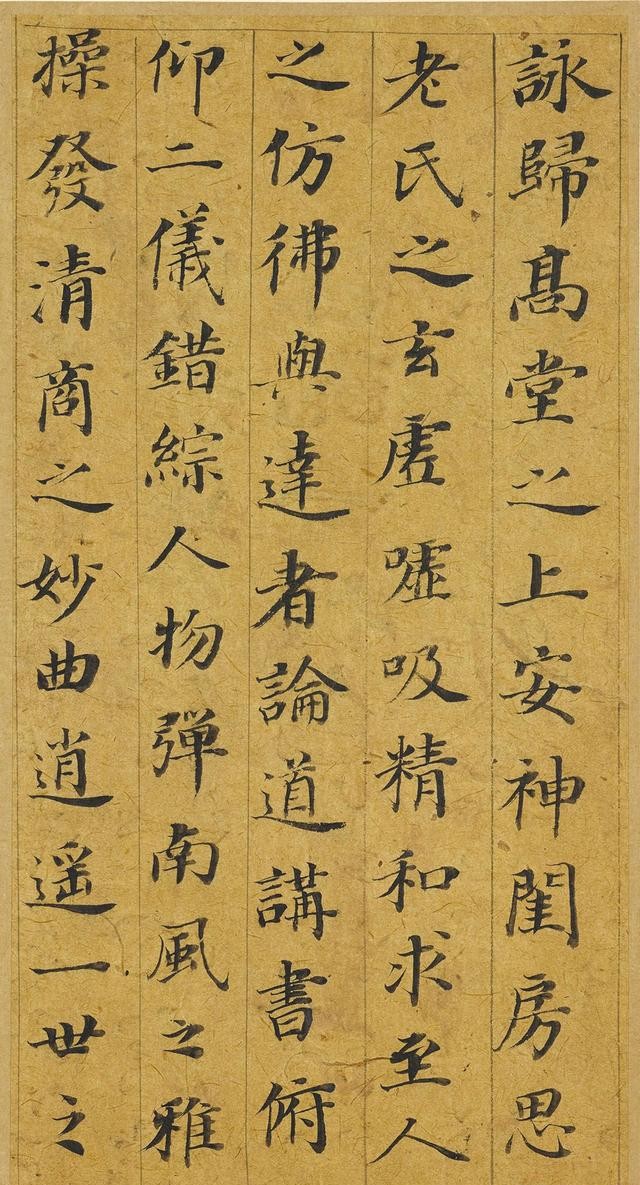 詠歸高堂之上安神閨房思
老氏之玄虛噓吸精和求至人
之仿彿與達者論道講書俯
仰二儀錯綜人物彈南風之雅
操發清商之妙曲逍遥一世之